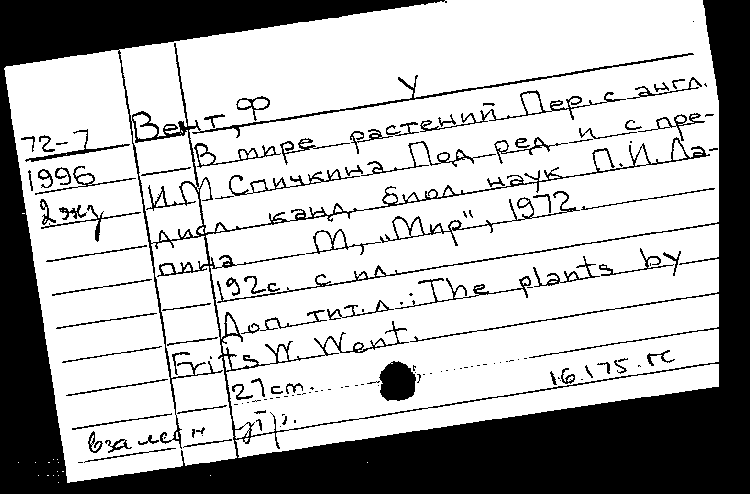 У
Вент, Ф
72-7
В мире растений. Пер. с англ.
1996
И.М Спичкина. Под ред. и с пре-
2 экз
дисл. канд. биол. наук П.И. Ла-
пина. М, „Мир", 1972.
192с. с ил.
Доп. тит. л.: The plants by
Frits W. Went.
27 cm.
16.175.ГС
взамен